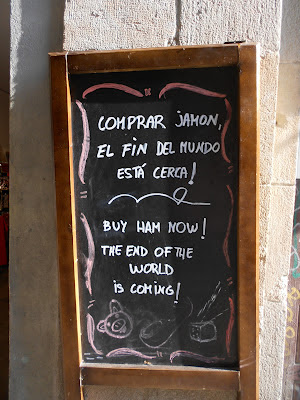 COMPRAR JAMON,
EL FIN DEL MUNDO
ESTÁ CERCA!
BUY HAM NOW!
THE END OF THE
WORLD
IS COMING!